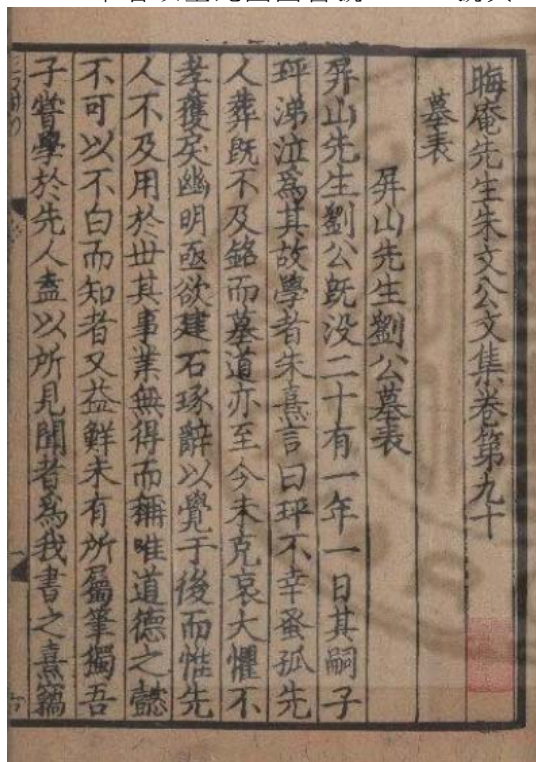 晦庵先生朱文公文集卷第九十
墓表
屏山先生劉公墓表
屏山先生劉公旣没二十有一年一日其嗣子
玶涕泣爲其故學者朱熹言曰玶不幸蚤孤先
人葬旣不及銘而墓道亦至今未克表大懼不
孝獲戾幽明亟欲建石琢辭以覺于後而惟先
人不及用於丗其事業無得而稱唯道德之懿
不可以不白而知者又益鮮未有所屬筆獨吾
子甞學於先人盍以所見聞者爲我書之熹竊